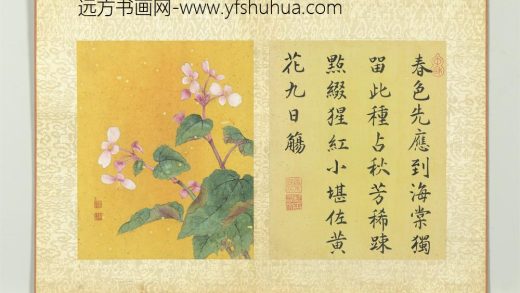 远方书画网-www.yfshuhua.com
春色先應到海棠獨
畱此種占秋芳稀踈
點綴猩紅小堪佐黄
花九日觴